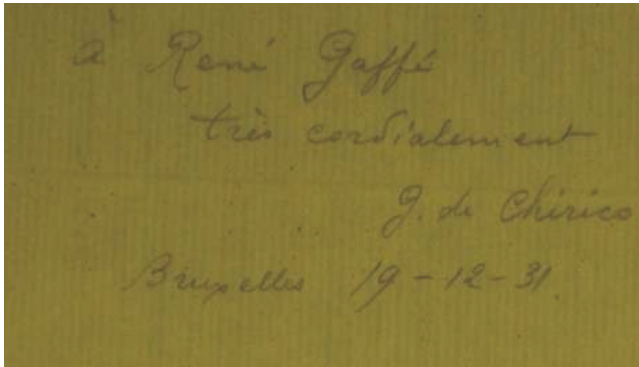 à René Gaffé
très cordialement
G. de Chirico
Bruxelles 19-12-31